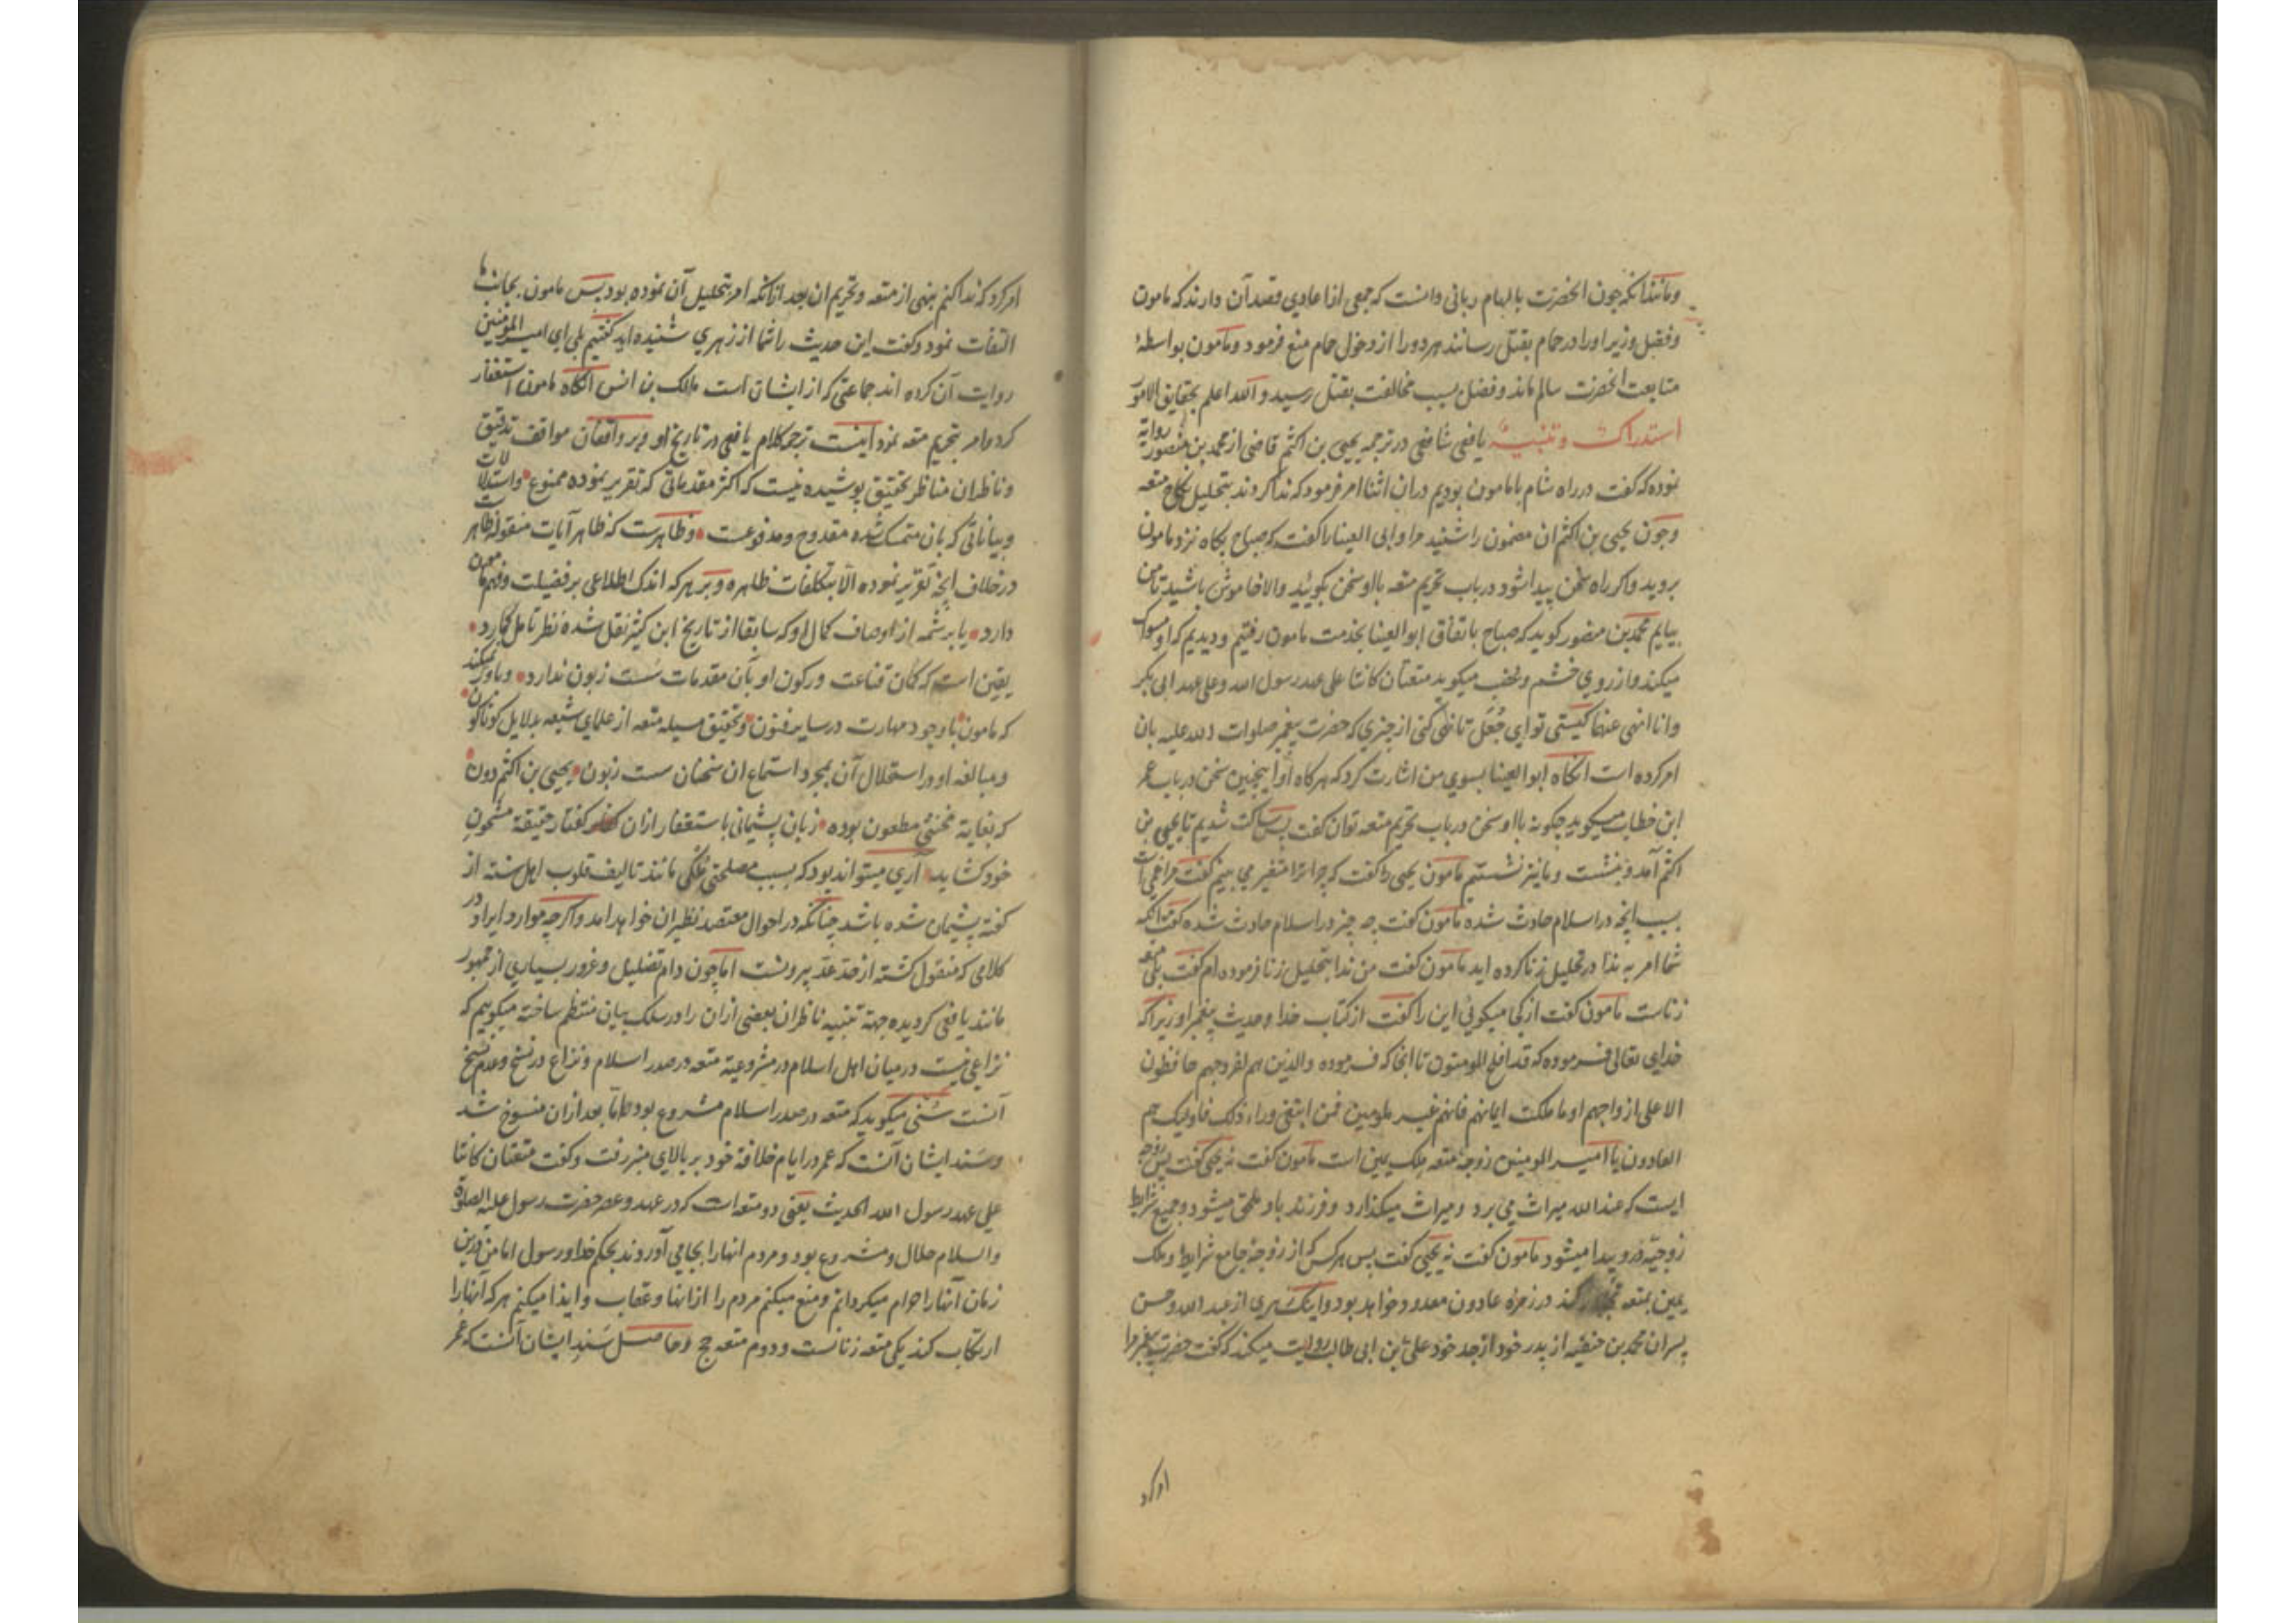 و مانند آنکه چون آنحضرت بالهام ربانی دانست که جمعی از اعادی قصد آن دارند که مامون
و فضل وزیر او را در حمام بقتل رسانند هر دو را از دخول حمام منع فرمود و مامون بواسطهٔ
متابعت آنحضرت سالم ماند و فضل بسبب مخالفت بقتل رسید و الله اعلم بحقایق الامور
استدراک و تنبیه یافعی شافعی در ترجمه یحیی بن اکثم قاضی از محمد بن منصور روایة
نموده که گفت در راه شام با مامون بودیم در ان اثنا امر فرمود که ندا کردند بتحلیل نکاح متعه
و چون یحیی بن اکثم ان مضمون را شنید مرا و ابی العینا را گفت که صباح پکاه نزد مامون
بروید و اکر راه سخن پیدا شود در باب تحریم متعه با او سخن بکوئید والا خاموش باشید تا من
بیایم محمد بن منصور کوید که صباح باتفاق ابوالعینا بخدمت مامون رفتیم و دیدیم که او مسواک
میکند و از روی خشم و غضب میکوید متعتان کانتا علی عهد رسول الله و علی عهد ابی بکر
و انا انهی عنهما کیستی تو ای جُعَل تا نهی کنی از چیزی که حضرت پیغمبر صلوات الله علیه بان
امر کرده است انکاه ابو العینا بسوی من اشارت کرد که هرکاه او اینچنین سخن در باب عمر
ابن خطاب میکوید چکونه با او سخن در باب تحریم متعه توان کفت پس ساکت شدیم تا یحیی بن
اکثم آمد و بنشست و ما نیز نشستیم مامون یحیی را کفت که چرا ترا متغیر می بینم کفت مرا غمی است
بسبب انچه در اسلام حادث شده مامون کفت چه چیز در اسلام حادث شده کفت آنکه
شما امر به ندا در تحلیل زنا کرده اید مامون کفت من ندا بتحلیل زنا فرموده ام کفت بلی متعه
زناست مامون کفت از کجا میکوئی این را کفت از کتاب خدا و حدیث پیغمبر او زیرا که
خدای تعالی فرموده که قد افلح المومنون تا انجا که فرموده والذین هم لفروجهم حافظون
الا علی ازواجهم او ما ملکت ایمانهم فانهم غیر ملومین فمن ابتغی وراء ذلک فاولیک هم
العادون یا امیر المومنین زوجهٔ متعه ملک یمین است مامون کفت نه یحیی کفت پس زوجه
ایست که عند الله میراث می برد و میراث میکذارد و فرزند باو ملحق میشود و جمیع شرایط
زوجیّه درو پیدا میشود مامون کفت نه یحیی کفت پس هر کس که از زوجهٔ جامع شرایط و ملک
یمین بمتعه تجاوز کند در زمره عادون معدود خواهد بود و اینک زهری از عبد الله و حسن
پسران محمد بن حنفیه از پدر خود از جد خود علی بن ابی طالب روایت میکند که کفت حضرت پیغمبر مرا
امر کرد
امر کرد که ندا کنم بنهی از متعه و تحریم ان بعد ازانکه امر بتحلیل آن نموده بود پس مامون بجانب ما
التفات نمود و کفت این حدیث را شما از زهری شنیده اید کفتیم بلی ای امیر المؤمنین
روایت آن کرده اند جماعتی که از ایشان است مالک بن انس انکاه مامون استغفار
کرد و امر بتحریم متعه نمود اینست ترجمه کلام یافعی در تاریخ او و بر واقفان مواقف تدقیق
و ناظران مناظر تحقیق پوشیده نیست که اکثر مقدماتی که تقریر نموده ممنوع و استدلالات
و بیاناتی که بان متمسک شده مقدوح و مدفوعست و ظاهرست که ظاهر آیات منقوله ظاهر است
در خلاف انچه تقریر نموده الا بتکلفات ظاهره و بر هرکه اندک اطلاعی بر فضیلت و فهم مامون
دارد یا بر شمه از اوصاف کمال او که سابقا از تاریخ ابن کثیر نقل شده نظر تامل کمارد
یقین است که کمان قناعت و رکون او بآن مقدمات سست زبون ندارد و باور نمیکند
که مامون با وجود مهارت در سایر فنون و تحقیق مسیله متعه از علمای شیعه بدلایل کوناکون
و مبالغه او در استحلال آن بمجرد استماع ان سخنان سست زبون یحیی بن اکثم دون
که بغایة مخنثی مطعون بوده زبان پشیمانی باستغفار ازان کفتار حقیقة مشحون
خود کشاید آری میتواند بود که بسبب مصلحتی ملکی مانند تالیف قلوب اهل سنه از
کفته پشیمان شده باشد چنانکه در احوال معتضد نظیر ان خواهد امد و اکرچه موارد ایراد در
کلامی که منقول کشته از حد عدّ بیرونست اما چون دام تضلیل و غرور بسیاری از جمهور
مانند یافعی کردیده جهة تنبیه ناظران بعضی ازان را در سلک بیان منتظم ساخته میکوییم که
نزاعی نیست در میان اهل اسلام در مشروعیة متعه در صدر اسلام و نزاع در نسخ و عدم نسخ
آنست سُنی میکوید که متعه در صدر اسلام مشروع بود اما بعد ازان منسوخ شد
و سَند ایشان آنست که عمر در ایام خلافة خود بر بالای منبر رفت و کفت متعتان کانتا
علی عهد رسول الله الحدیث یعنی دو متعه است که در عهد و عصر حضرت رسول علیه الصلوة
والسلام حلال و مشروع بود و مردم انها را بجا می آوردند بحکم خدا و رسول اما من درین
زمان آنها را حرام میکردانم و منع میکنم مردم را از انها و عقاب و ایذا میکنم هرکه آنها را
ارتکاب کند یکی متعه زنانست و دوم متعه حج و حاصل سَند ایشان آنست که عمر